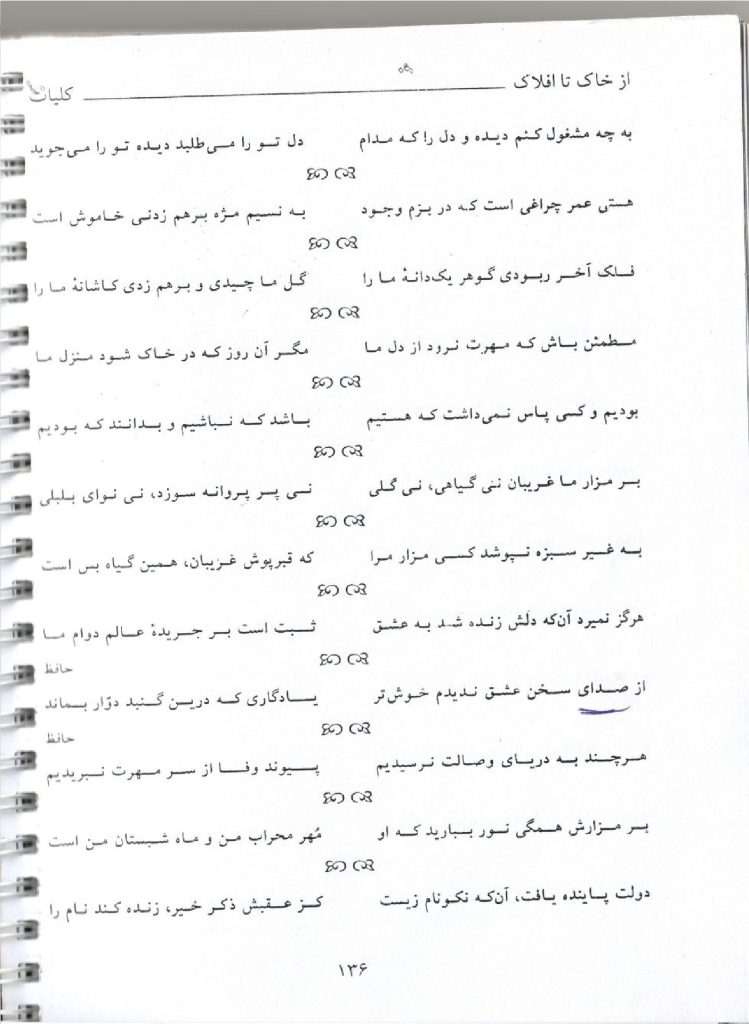 از خاک تا افلاک کلیات
به چه مشغول کنم دیده و دل را که مدام دل تو را می‌طلبد دیده تو را می‌جوید
هستی عمر چراغی است که در بزم وجود به نسیم مژه برهم زدنی خاموش است
فلک آخر ربودی گوهر یک‌دانهٔ ما را گل ما چیدی و برهم زدی کاشانهٔ ما را
مطمئن باش که مهرت نرود از دل ما مگر آن روز که در خاک شود منزل ما
بودیم و کسی پاس نمی‌داشت که هستیم باشد که نباشیم و بدانند که بودیم
بر مزار ما غریبان نی گیاهی، نی گلی نی پر پروانه سوزد، نی نوای بلبلی
به غیر سبزه نپوشد کسی مزار مرا که قبرپوش غریبان، همین گیاه بس است
هرگز نمیرد آن‌که دلش زنده شد به عشق ثبت است بر جریدهٔ عالم دوام ما
حافظ
از صدای سخن عشق ندیدم خوش‌تر یادگاری که درین گنبد دوّار بماند
حافظ
هرچند به دریای وصالت نرسیدیم پیوند وفا از سر مهرت نبریدیم
بر مزارش همگی نور ببارید که او مُهر محراب من و ماه شبستان من است
دولت پاینده یافت، آن‌که نکونام زیست کز عقبش ذکر خیر، زنده کند نام را
۱۳۶